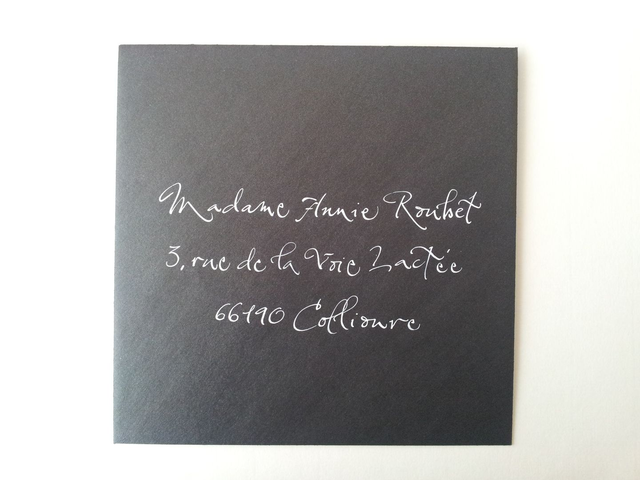 Madame Annie Roubet
3, rue de la Voie Lactée
66190 Collioure